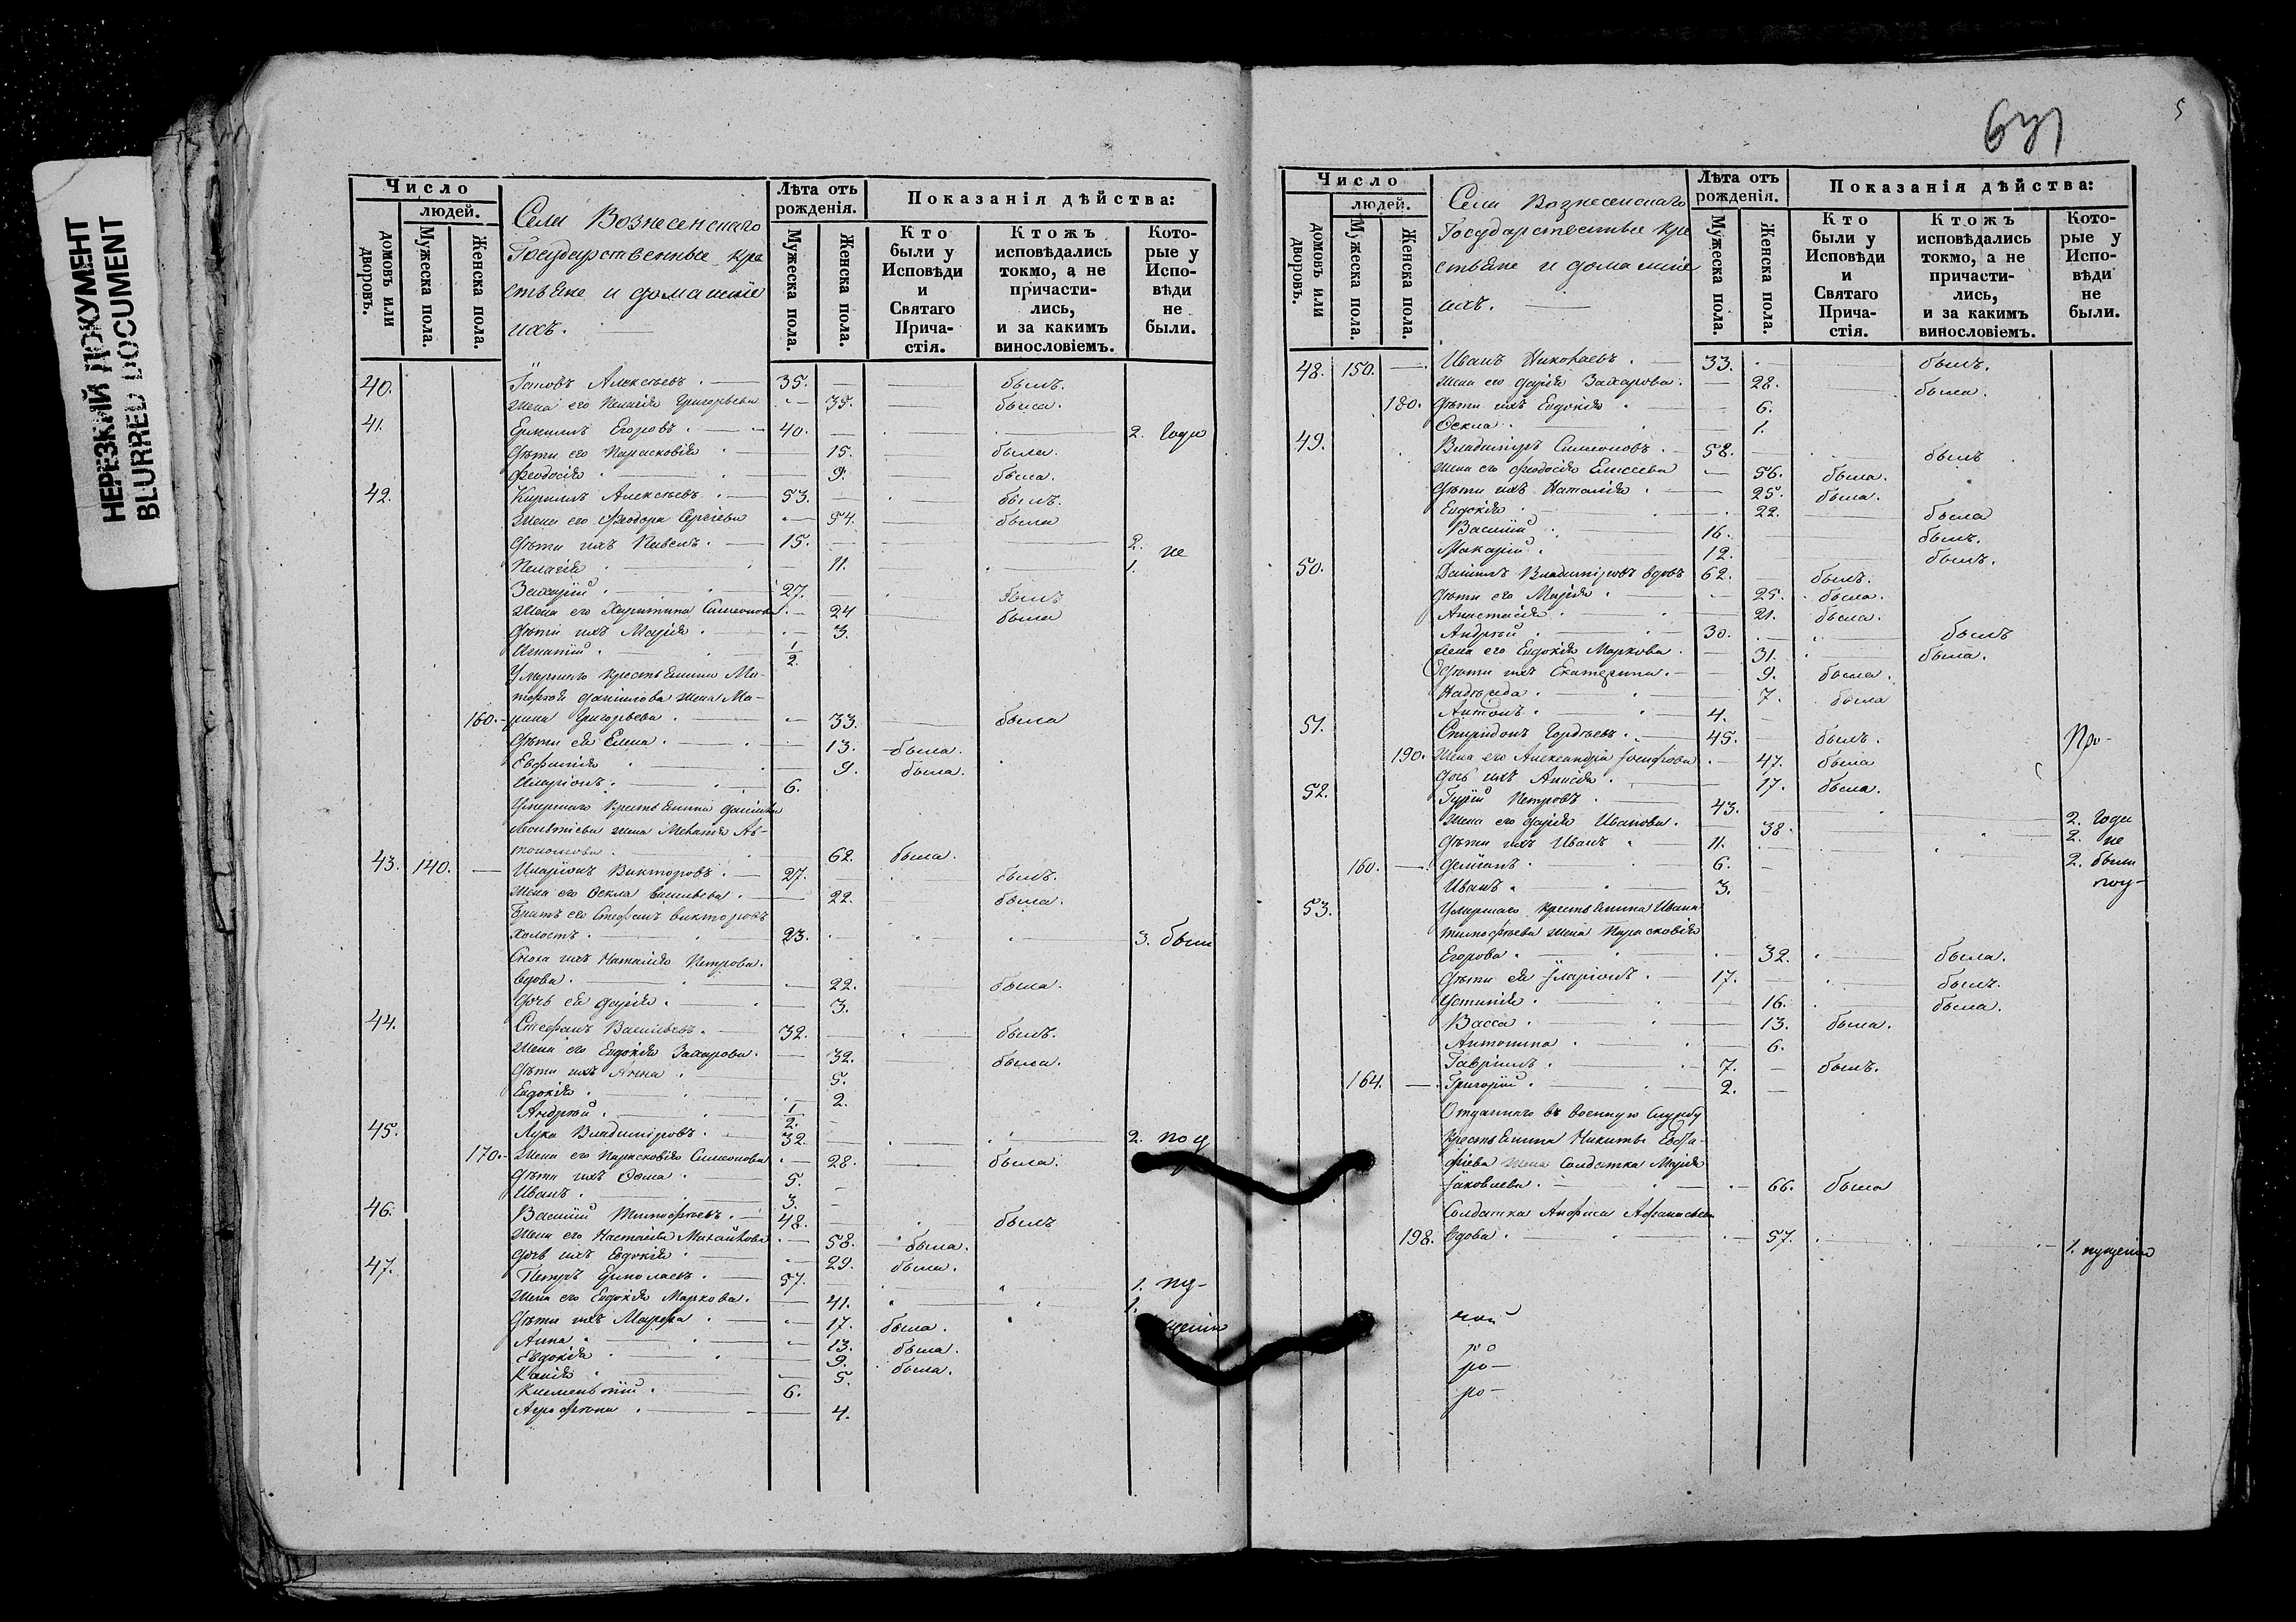 НЕРЕЗКИЙ ДОКУМЕНТ
BLURRED DOCUMENT
Число
людей.
домовъ или дворовъ.
Мужеска пола.
Женска пола.
Села Вознесенскаго
Государственные кре
стьяне и домашніе
ихъ.
Лѣта отъ рожденія.
Мужеска пола.
Женска пола.
Показанія дѣйства:
Кто были у Исповѣди и Святаго Прича-стія.
Ктожъ исповѣдались токмо, а не причасти-лись, и за какимъ винословіемъ.
Кото-рые у Испо-вѣди не были.
40. Алексѣевъ. 35. былъ.
Жена его Пелагія Григорьева 35. была.
41. Ермилъ Егоровъ. 40. 2. года
Дѣти его Парасковія 15. была.
Феодосія 9. была.
42. Кириллъ Алексѣевъ. 53. былъ.
Жена его Феодора Сергіева 54. была
Дѣти ихъ Павелъ. 15. 2.
не
Пелагія 11. 1.
Захарій 27. былъ
Жена его Харитина Симеонова 24 была
Дѣти ихъ Марія. 3.
Игнатій. 1/2.
Умершаго крестьянина
Данилова жена Ма-
160. рина Григорьева. 33. была
Дѣти ея Елена. 13. была.
Евфимія 9. была.
Иларіонъ. 6.
Умершаго крестьянина
Леонтіева жена Ав-
тономова 62. была.
43. 140. Иларіонъ Викторовъ. 27. былъ.
Жена его Ѳекла Васильева. 22. была.
Братъ его Стефанъ Викторовъ
холостъ. 23. 3. были
Сноха ихъ Наталія Петрова.
вдова. 22. была.
Дочь ея Дарія. 3.
44. Стефанъ Васильевъ. 32. былъ.
Жена его Евдокія Захарова. 32. была.
Дѣти ихъ Анна. 5.
Евдокія. 2.
Андрей. 1/2.
45. Лука Владиміровъ. 32. 2. по
170. Жена его Парасковія Симеонова 28. была.
Дѣти ихъ Ѳома. 5.
Иванъ. 3.
46. Василій Тимофѣевъ. 48. былъ
Жена его Настасія Михайлова 58. была.
Дочь ихъ Евдокія 29. была.
47. Петръ Ермолаевъ. 57. 1. пу-
Жена его Евдокія Маркова. 41. 1.
Дѣти ихъ Марфа 17. была.
щенію
Анна 13. была.
Евдокія 9. была.
Ксенія 5.
Климентій. 6.
Агрофена. 4.
671
5
Число
людей.
домовъ или дворовъ.
Мужеска пола.
Женска пола.
Села Вознесенскаго
Государственные кре
стьяне и домашніе
ихъ.
Лѣта отъ рожденія.
Мужеска пола.
Женска пола.
Показанія дѣйства:
Кто были у Исповѣди и Святаго Прича-стія.
Ктожъ исповѣдались токмо, а не причасти-лись, и за какимъ винословіемъ.
Кото-рые у Испо-вѣди не были.
48. 150. Иванъ Николаевъ. 33. былъ.
Жена его Дарія Захарова. 28. была.
180. Дѣти ихъ Евдокія 6.
Ѳекла 1.
49. Владиміръ Симеоновъ. 58. былъ
Жена его Феодосія Елисеева 56. была.
Дѣти ихъ Наталія. 25. была.
Евдокія 22. была
Василій 16. былъ.
Макарій. 12. былъ.
50. Даніилъ Владиміровъ вдовъ 62. былъ.
Дѣти его Марія. 25. была.
Анастасія 21. была.
Андрей. 30. былъ
жена его Евдокія Маркова. 31. была.
Дѣти ихъ Екатерина. 9. была.
Надежда. 7. была
Антонъ. 4.
51. Спиридонъ Гордѣевъ. 45. былъ. Про-
190. Жена его Александра Іосифова 47. была
Дочь ихъ Анисія. 17. была.
52. Гурій Петровъ. 43. 2. года
Жена его Дарія Иванова. 38. 2. не
Дѣти ихъ Иванъ 11. 2. были
160. Деміанъ. 6.
Иванъ. 3.
53. Умершаго крестьянина Ивана
Тимофѣева жена Парасковія
Егорова. 32. была.
Дѣти ея Иларіонъ. 17. былъ.
Устинія. 16. была.
Васса. 13. была.
Антонина. 6.
Гавріилъ. 7. былъ.
164. Григорій. 2.
Отданнаго въ военную службу
крестьянина Никиты Евста-
фіева жена солдатка Марія
Іаковлева. 66. была
Солдатка Анфиса Афанасьева
198. вдова. 57. 1. пущенію